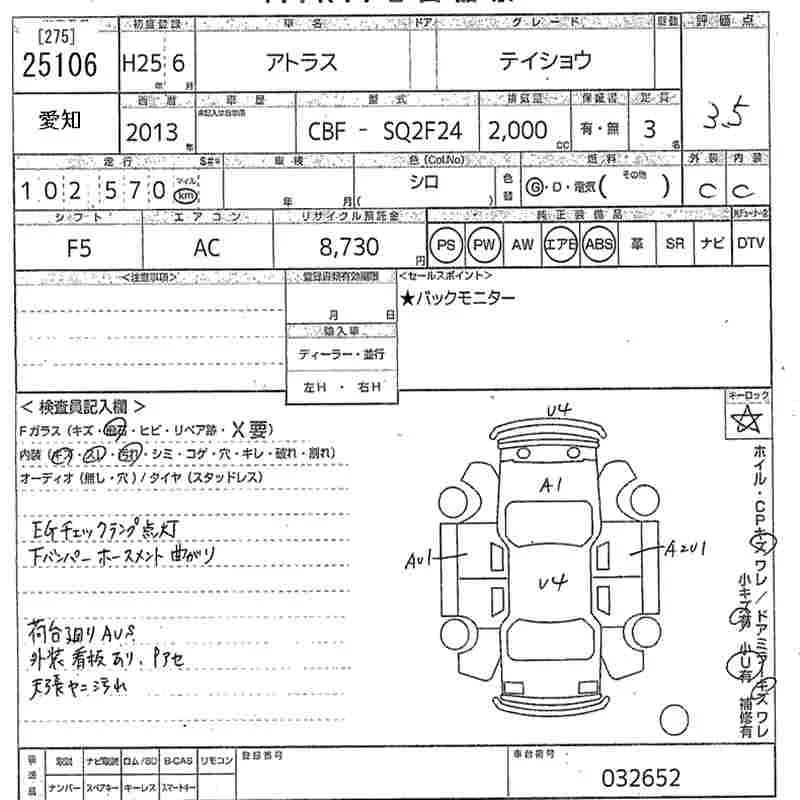 [275]
25106
初度登録 車名 ドア グレード 評価点
H25 6 アトラス テイショウ
年 月
愛知
西暦 車歴 型式 排気量 保証書 定員
2013 年 CBF - SQ2F24 2,000 cc 有・無 3 名
3.5
走行 車検 色(Col.No) 燃料 外装 内装
102570 マイル km 年 月 シロ 色替 G・D・電気 (その他 ) C C
シフト エアコン リサイクル預託金 純正装備品
F5 AC 8,730 円 PS PW AW エアB ABS 革 SR ナビ DTV
<注意事項> 登録書類有効期限 <セールスポイント>
月 日 ★バックモニター
輸入車
ディーラー・並行
左H ・ 右H
キーロック
< 検査員記入欄 >
Fガラス (キズ・飛石・ヒビ・リペア跡・X要)
内装 (キズ・スレ・汚れ・シミ・コゲ・穴・キレ・破れ・割れ)
オーディオ (無し・穴) / タイヤ (スタッドレス)
EGチェックランプ点灯
下バンパー ホースメント 曲がり
荷台廻り AUS
外装 看板 あり、Pアセ
天張ヤニ汚れ
U4
A1
AU1
A2U1
U4
ホイル・CPキズワレ/ドアミラーキズワレ
小キズ有 小U有 補修有
装備品 取説 ナビ取説 ロム/SD B-CAS リモコン 登録番号 車台番号
ナンバー スペアキー キーレス スマートキー 032652